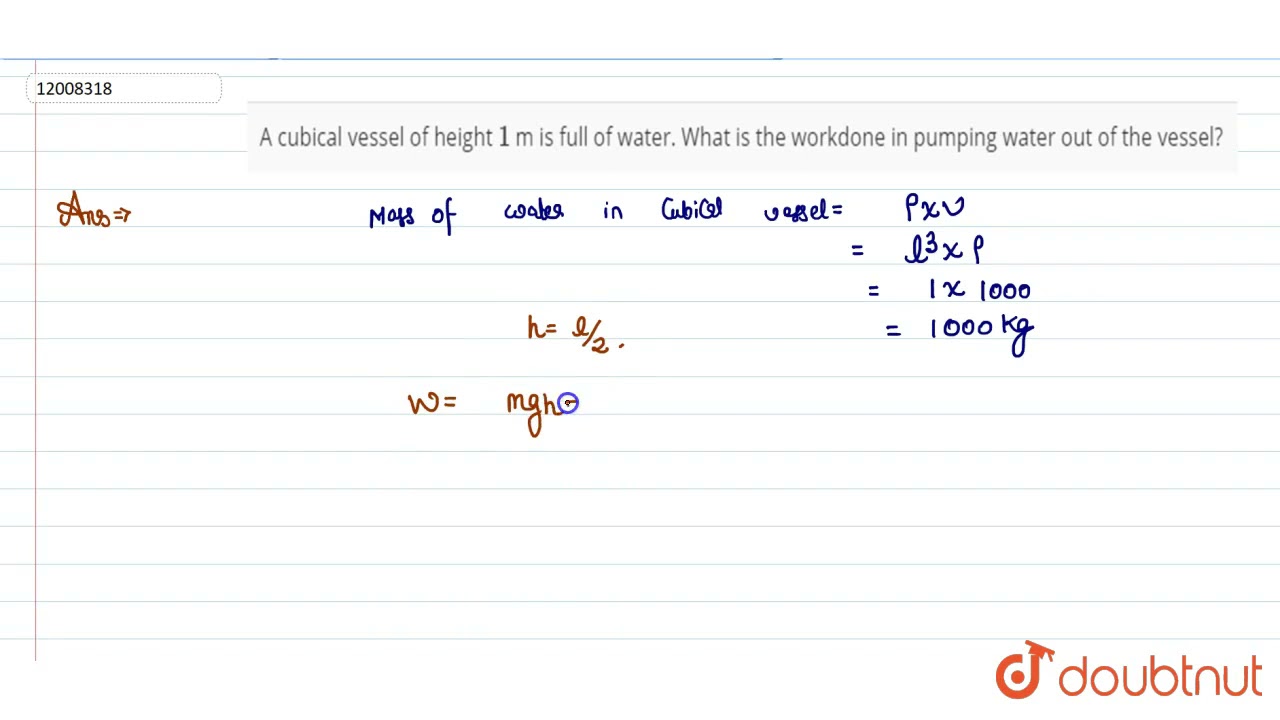 12008318
A cubical vessel of height 1 m is full of water. What is the workdone in pumping water out of the vessel?
Ans ⇒ Mass of water in Cubical vessel = ρ x v
= l³ x ρ
= 1 x 1000
= 1000 kg
h = l/2 .
W = mgh
doubtnut